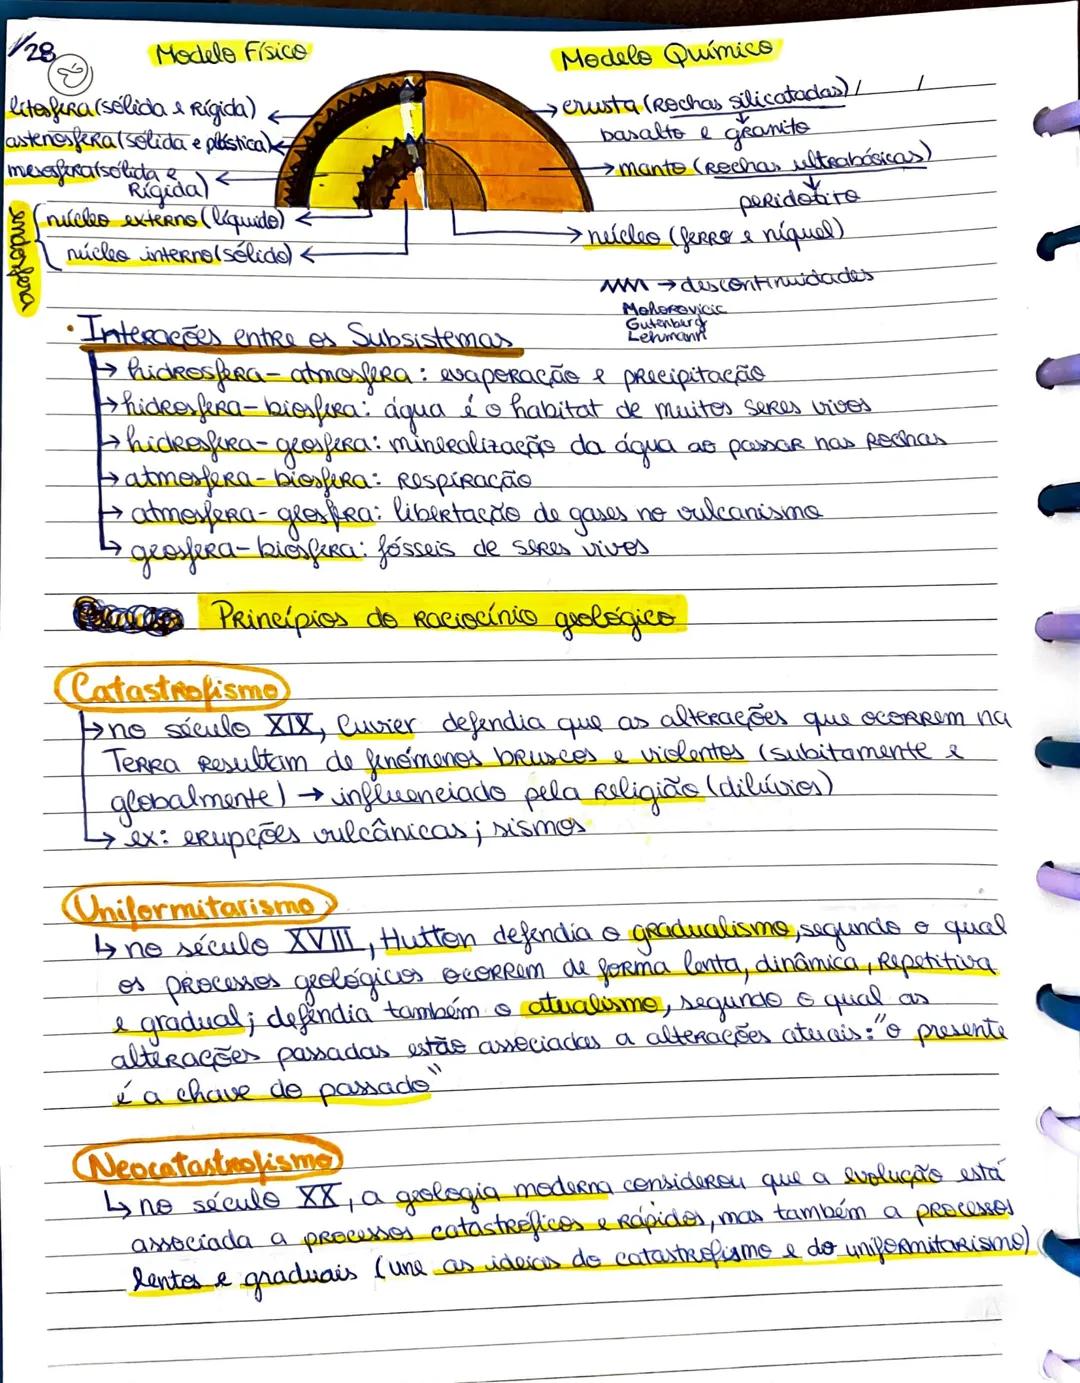 1/28
Modelo Físico
Modelo Químico
litosfera (sólida e Rígida)
astenosfera (sólida e plástica)
mesosfera (sólida e
Rígida)
endosfera
núcleo externo (líquido)
núcleo interno (sólido)
crusta (Rochas silicatadas)
basalto e granito
manto (Rochas ultrabásicas)
peridotito
núcleo (ferro e níquel)
→ descontinuidades
Mohorovicic
Gutenberg
Lehmann
• Interações entre os Subsistemas
→ hidrosfera - atmosfera: evaporação e precipitação
→ hidrosfera - biosfera: água é o habitat de muitos seres vivos
→ hidrosfera - geosfera: mineralização da água ao passar nas rochas
→ atmosfera - biosfera: respiração
→ atmosfera - geosfera: libertação de gases no vulcanismo
→ geosfera - biosfera: fósseis de seres vivos
Princípios do raciocínio geológico
Catastrofismo
↳ no século XIX, Cuvier defendia que as alterações que ocorrem na
Terra resultam de fenómenos bruscos e violentos (subitamente e
globalmente) → influenciado pela religião (dilúvios)
↳ ex: erupções vulcânicas; sismos
Uniformitarismo
↳ no século XVIII, Hutton defendia o gradualismo, segundo o qual
os processos geológicos ocorrem de forma lenta, dinâmica, repetitiva
e gradual; defendia também o atualismo, segundo o qual as
alterações passadas estão associadas a alterações atuais: "o presente
é a chave do passado"
Neocatastrofismo
↳ no século XX, a geologia moderna considerou que a evolução está
associada a processos catastróficos e rápidos, mas também a processos
lentos e graduais (une as ideias do catastrofismo e do uniformitarismo)